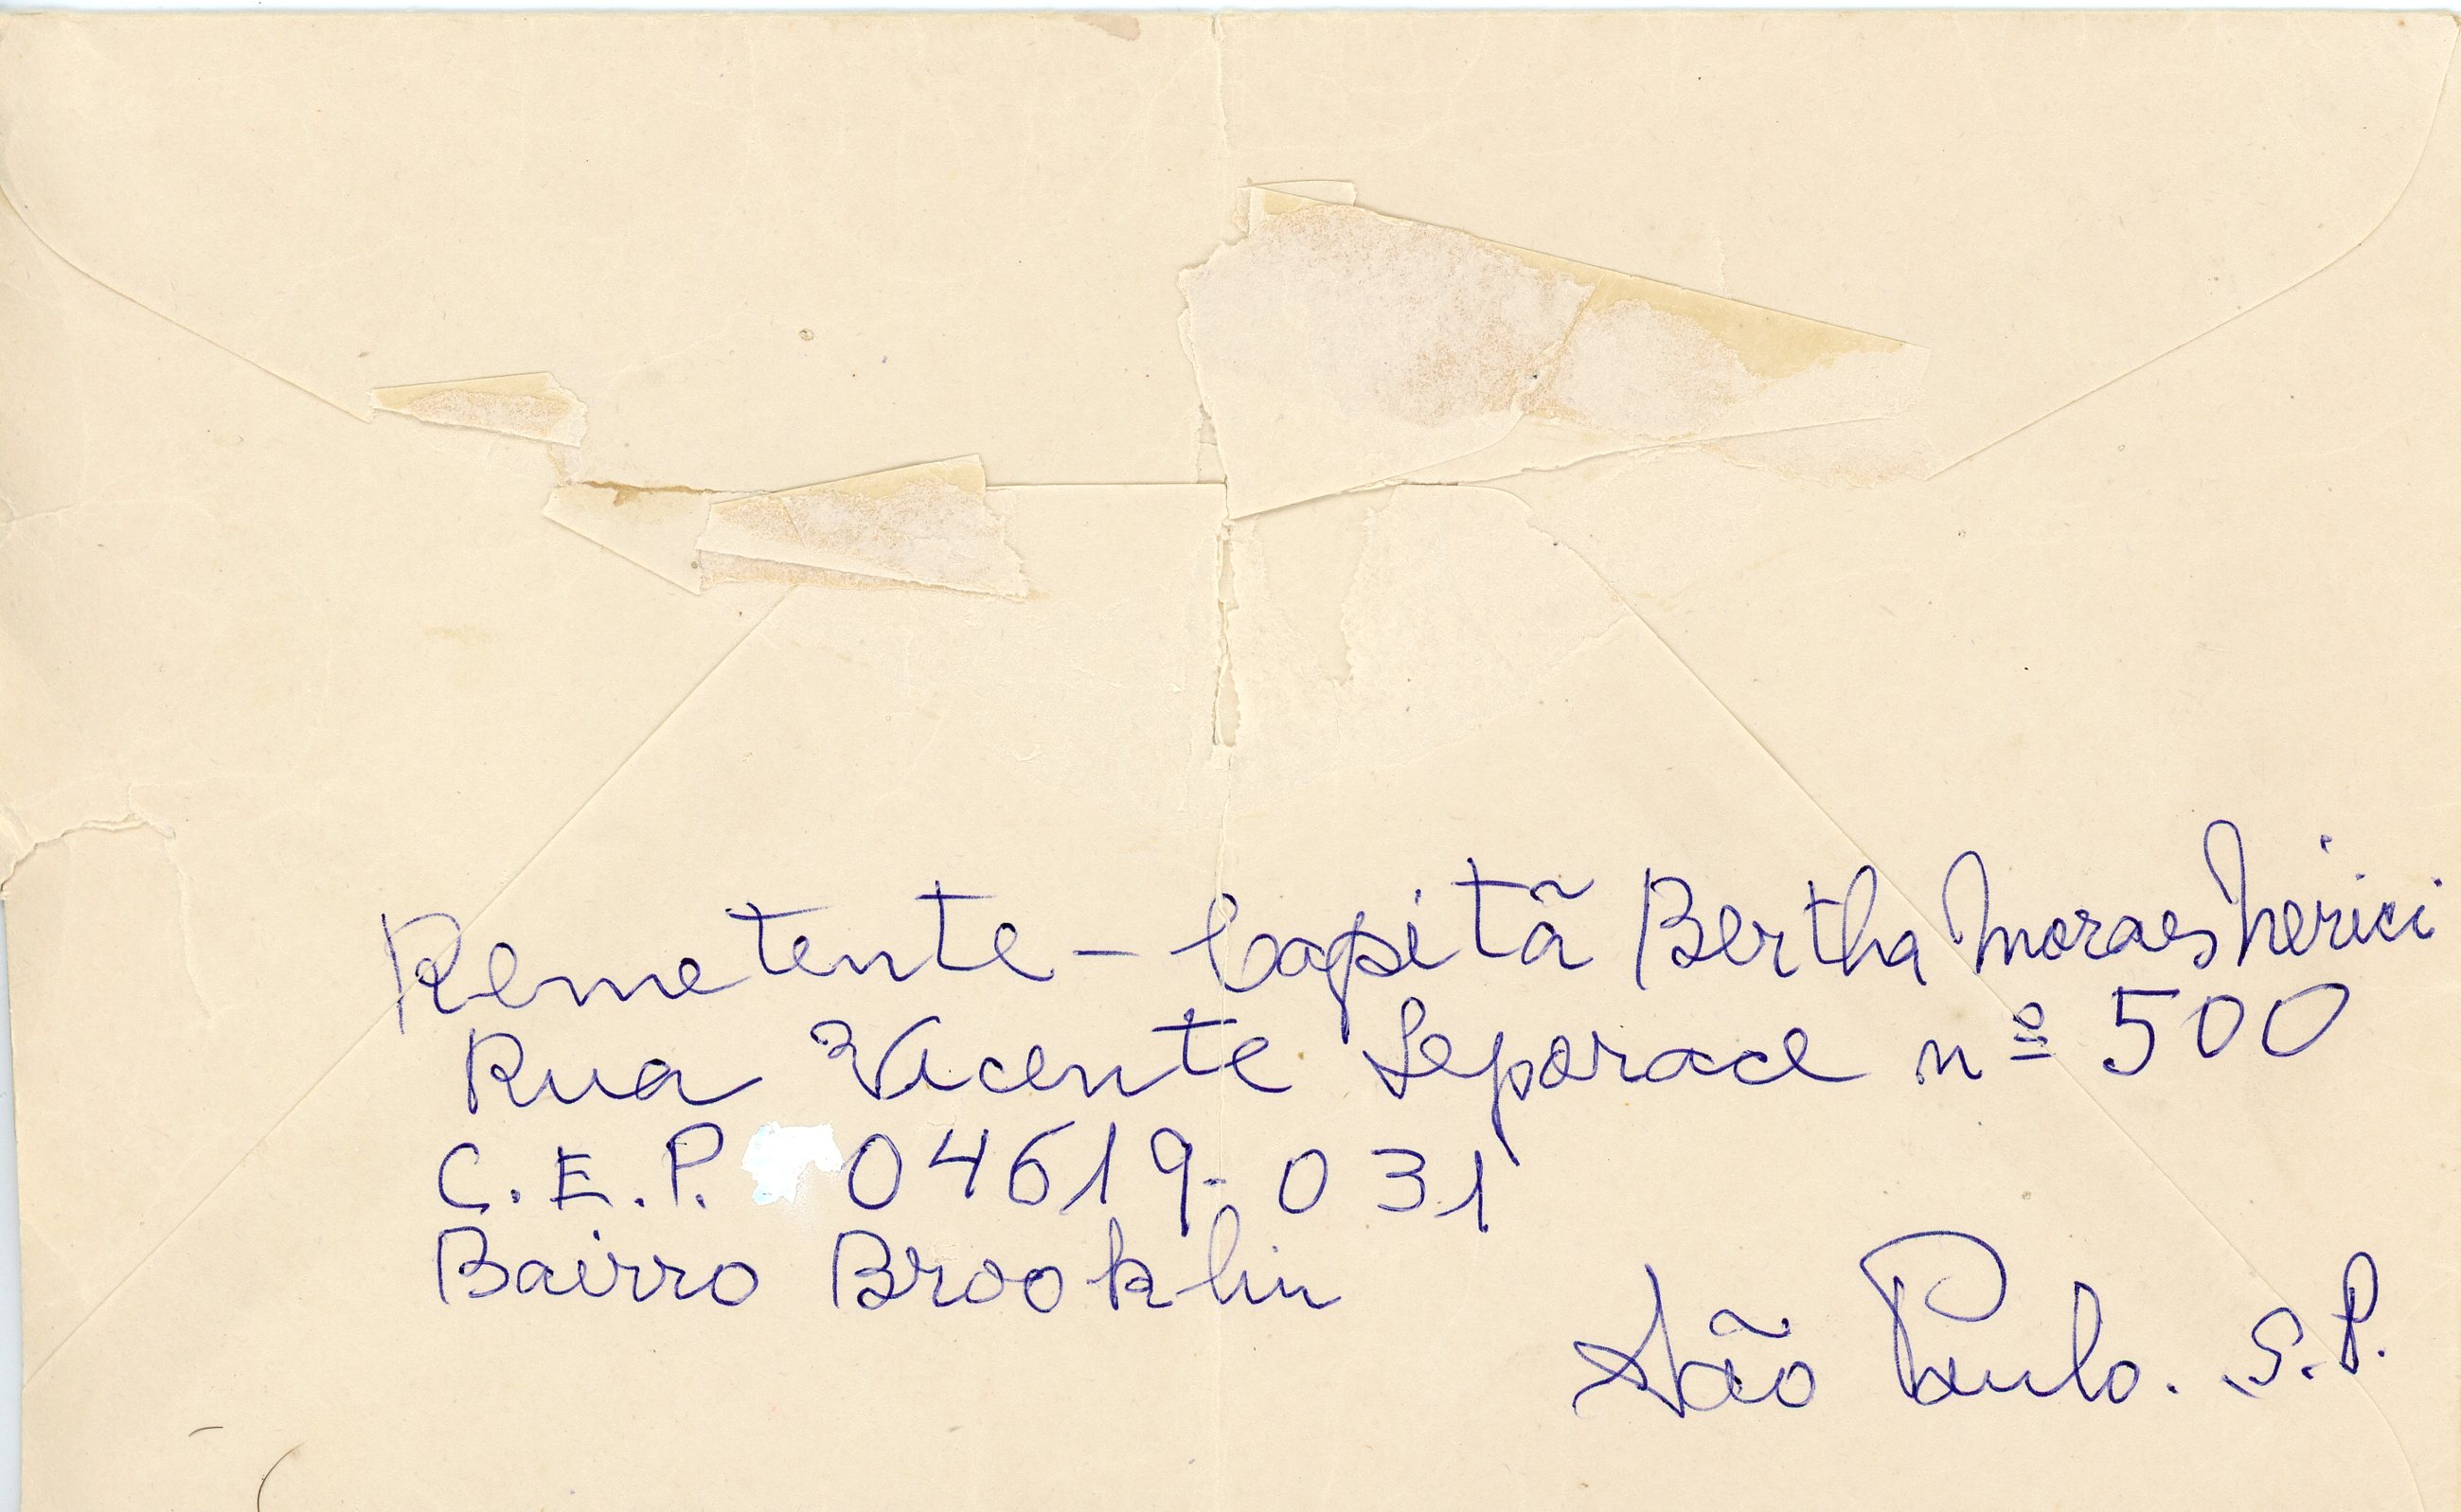 Remetente - Capitã Bertha Moraes Nerici
Rua Vicente Leporace nº 500
C.E.P. 04619-031
Bairro Brooklin
São Paulo. S.P.